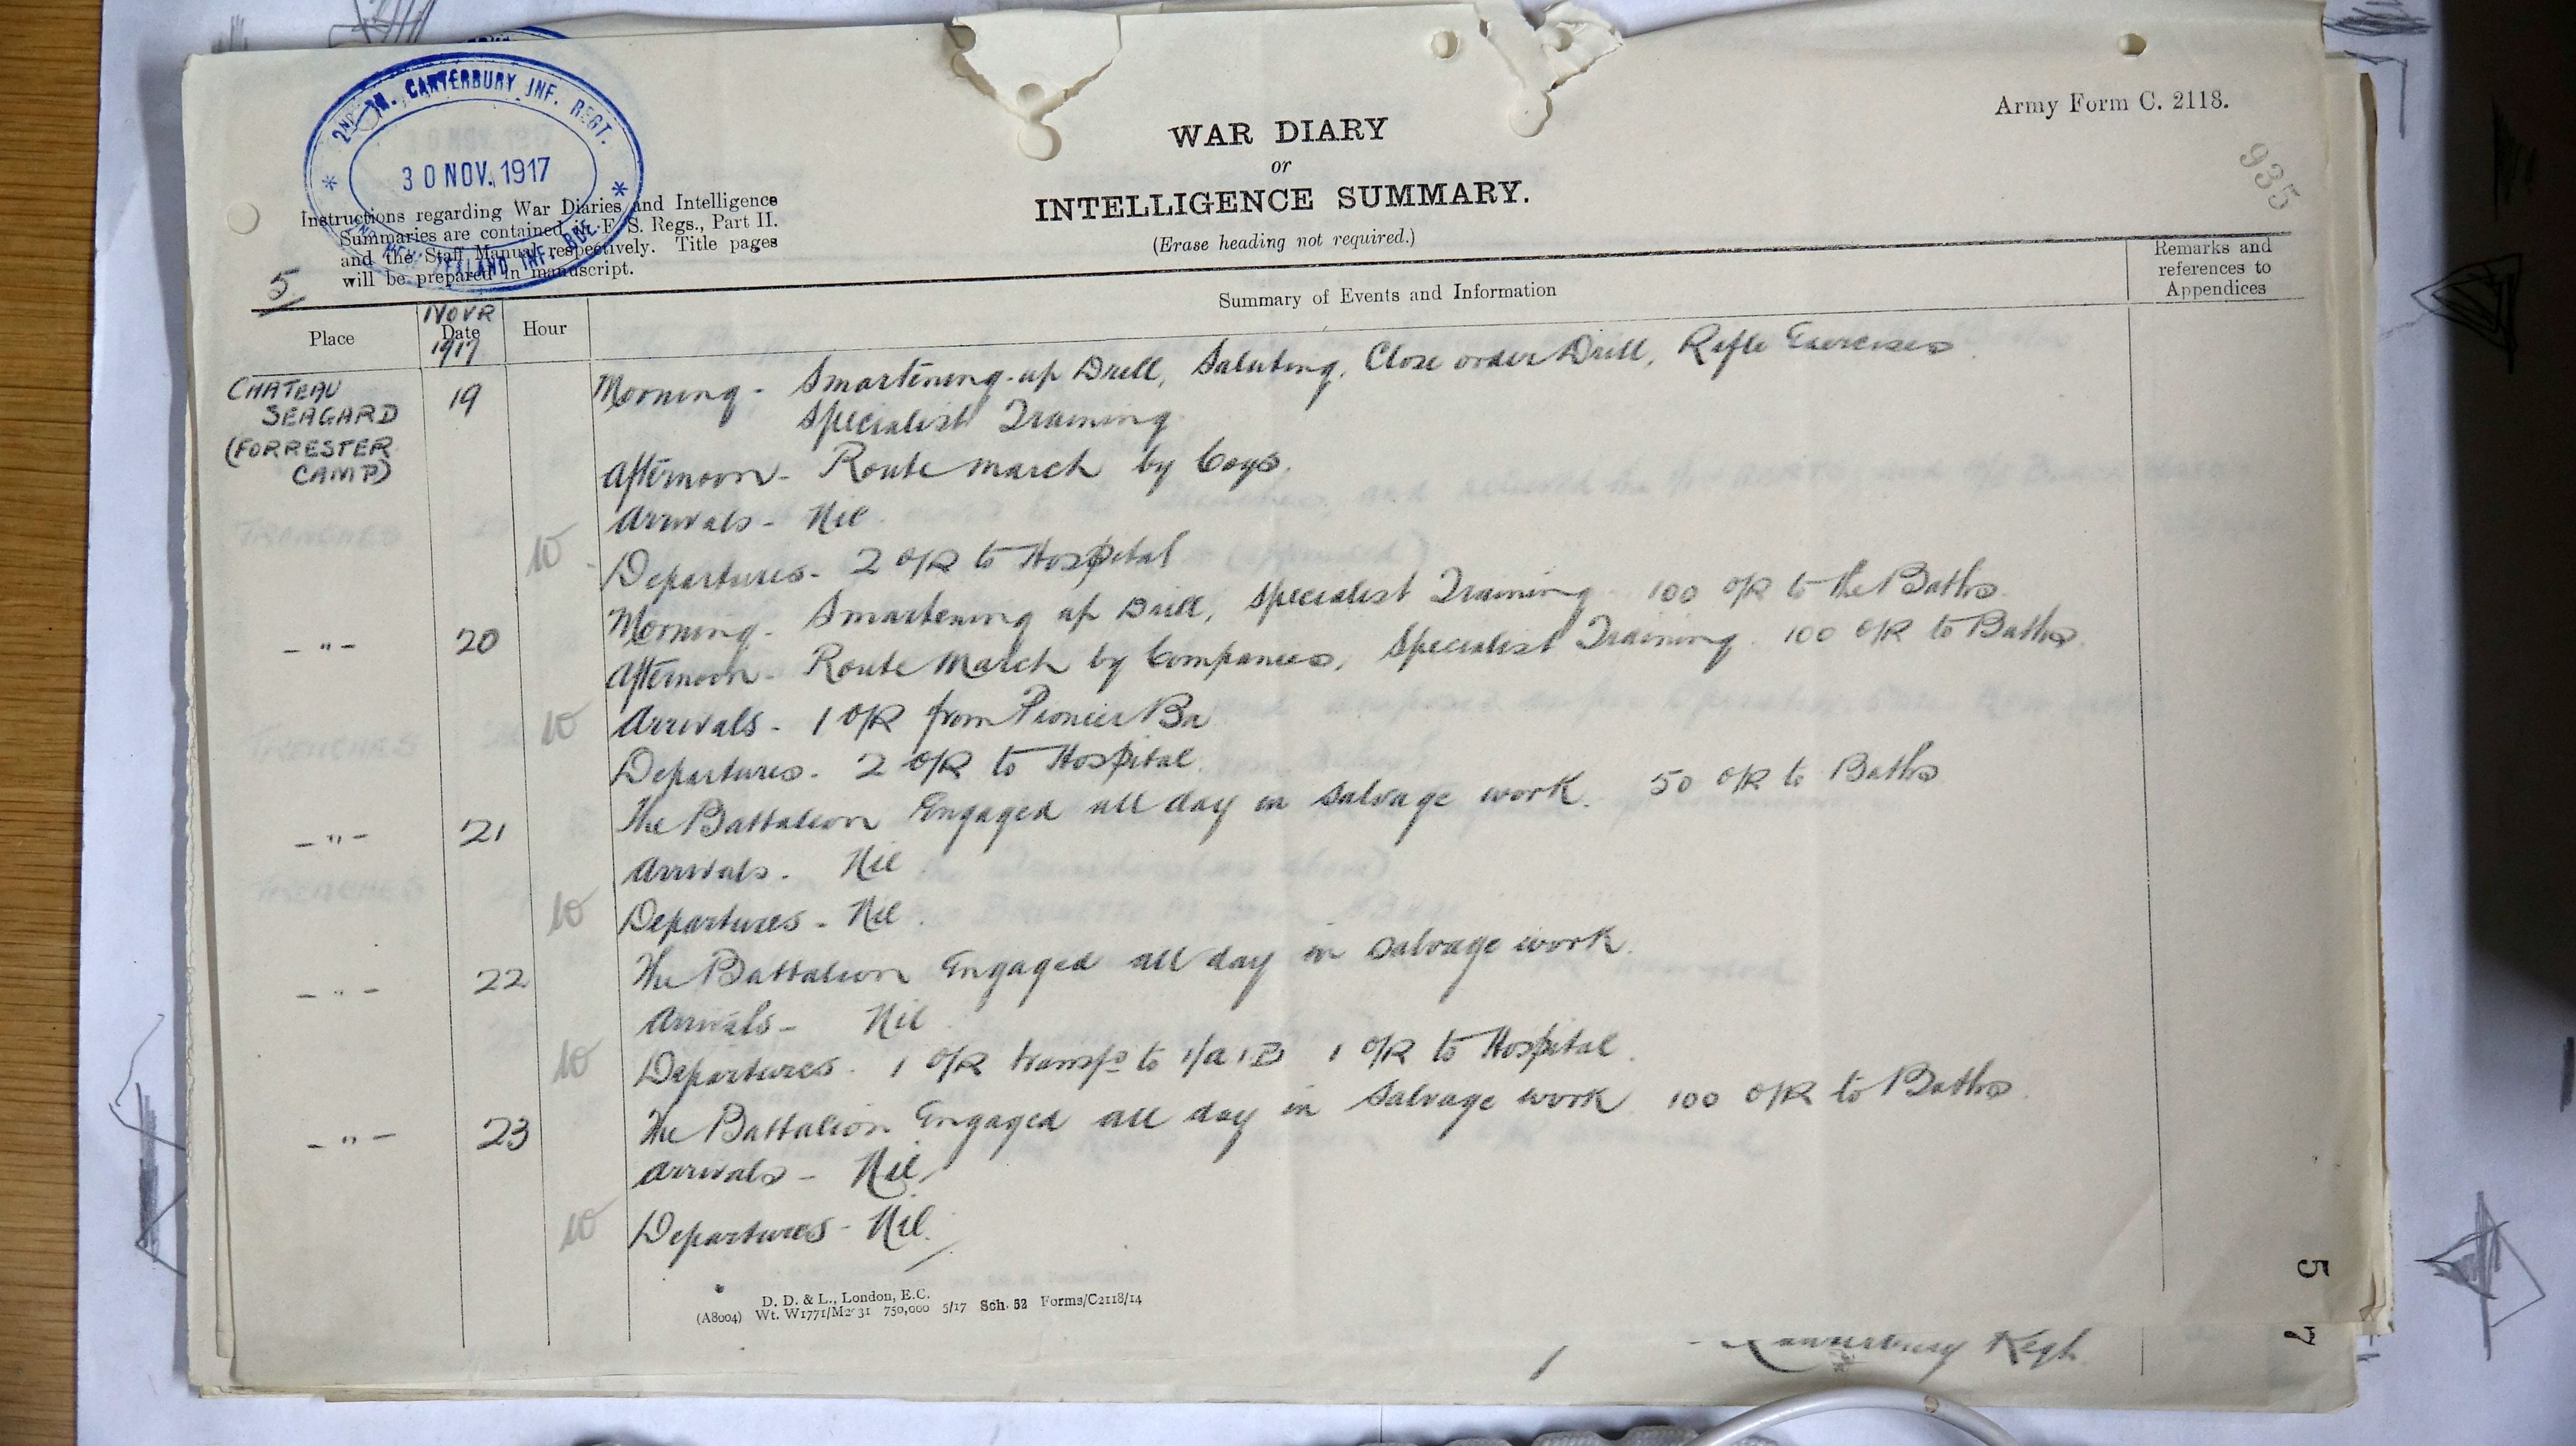 Army Form C. 2118.
935
2ND BN. CANTERBURY INF. REGT.
30 NOV. 1917
ZEALAND INF. BDE.
WAR DIARY
or
INTELLIGENCE SUMMARY.
(Erase heading not required.)
Instructions regarding War Diaries and Intelligence
Summaries are contained in F. S. Regs., Part II.
and the Staff Manual respectively. Title pages
will be prepared in manuscript.
5/
Place
NOVR
Date
1917
Hour
Summary of Events and Information
Remarks and
references to
Appendices
CHATEAU
SEAGARD
(FORRESTER
CAMP)
19
Morning - Smartening-up Drill, Saluting, Close order Drill, Rifle Exercises
Specialist Training
Afternoon - Route march by Coys.
Arrivals - Nil
Departures - 2 O/R to Hospital
- " - 20
Morning - Smartening up Drill, Specialist Training 100 O/R to the Baths
Afternoon - Route March by Companies, Specialist Training. 100 O/R to Baths.
Arrivals - 1 O/R from Pioneer Bn
Departures - 2 O/R to Hospital.
- " - 21
The Battalion Engaged all day in Salvage work. 50 O/R to Baths
Arrivals - Nil
Departures - Nil.
- " - 22
The Battalion Engaged all day in salvage work.
Arrivals - Nil
Departures. 1 O/R to 1 O/R to Hospital.
- " - 23
The Battalion Engaged all day in Salvage work 100 O/R to Baths.
Arrivals - Nil
Departures - Nil.
D. D. & L., London, E.C.
(A8004) Wt. W1771/M2031 750,000 5/17 Sch. 52 Forms/C2118/14
5
7
Canterbury Regt.